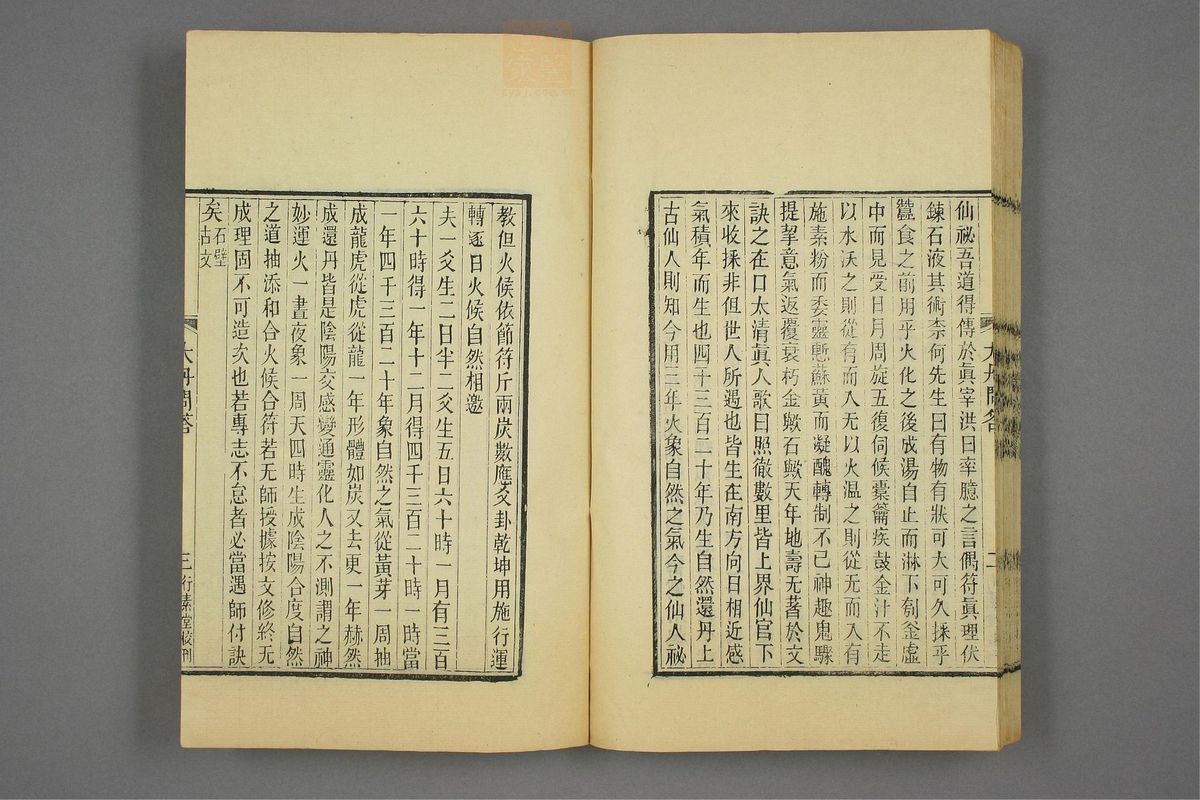 仙祕吾道得傳於眞宰洪曰率臆之言偶符眞理伏
鍊石液其術柰何先生曰有物有狀可大可久採乎
蠶食之前用乎火化之後成湯自止而淋下刳釜虛
中而見受日月周旋五復伺候橐籥疾鼓金汁不走
以水沃之則從有而入无以火溫之則從无而入有
施素粉而委靈慙蘇黃而凝醜轉制不已神趣鬼驟
提挈意氣返覆衰朽金歟石歟天年地壽无著於文
訣之在口太清眞人歌曰照徹數里皆上界仙官下
來收採非但世人所遇也皆生在南方向日相近感
氣積年而生也四千三百二十年乃生自然還丹上
古仙人則知今用三年火象自然之氣今之仙人祕
大丹問答
二
教但火候依節符斤兩炭數應爻卦乾坤用施行運
轉逐日火候自然相邀
夫一爻生二日半二爻生五日六十時一月有三百
六十時得一年十二月得四千三百二十時一時當
一年四千三百二十年象自然之氣從黃芽一周抽
成龍虎從虎從龍一年形體如炭又去更一年赫然
成還丹皆是陰陽交感變通靈化人之不測謂之神
妙運火一晝夜象一周天四時生成陰陽合度自然
之道抽添和合火候合符若无師授據按文修終无
成理固不可造次也若專志不怠者必當遇師付訣
矣石壁古文
大丹問答
三
行素堂校刊